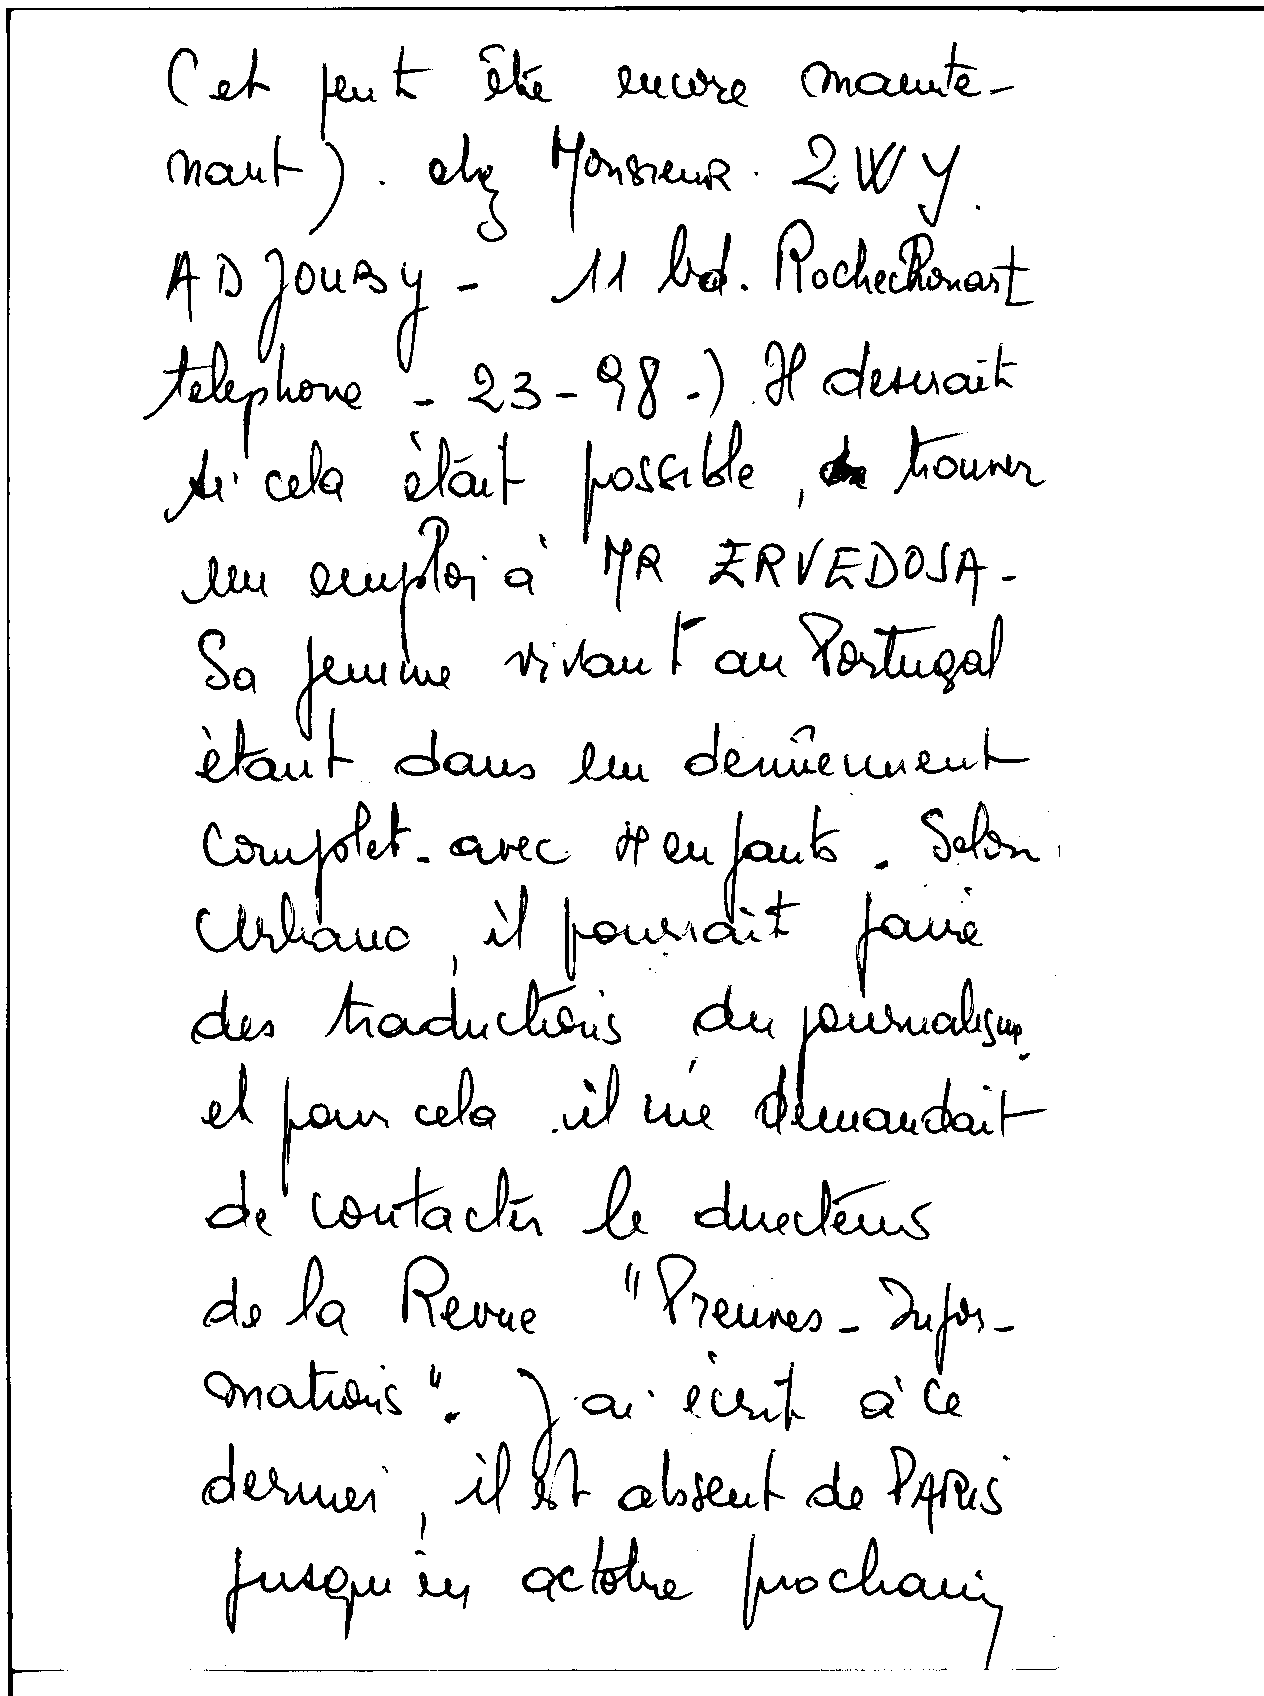 (et peut être encore mainte-
nant). chez Monsieur. 2WY.
ADJOUBY - 11 bd. Rochechouart
telephone - 23-98-) Il desirait
si cela était possible, de trouver
un emploi à MR ERVEDOSA -
Sa femme vivant au Portugal
étant dans un denûement
complet - avec 4 enfants. Selon
Urbano, il pourrait faire
des traductions du journalisme
et pour cela il me demandait
de contacter le directeur
de la Revue "Preuves - Infor-
mations". J'ai écrit à ce
dernier, il est absent de PARIS
jusqu'en octobre prochain